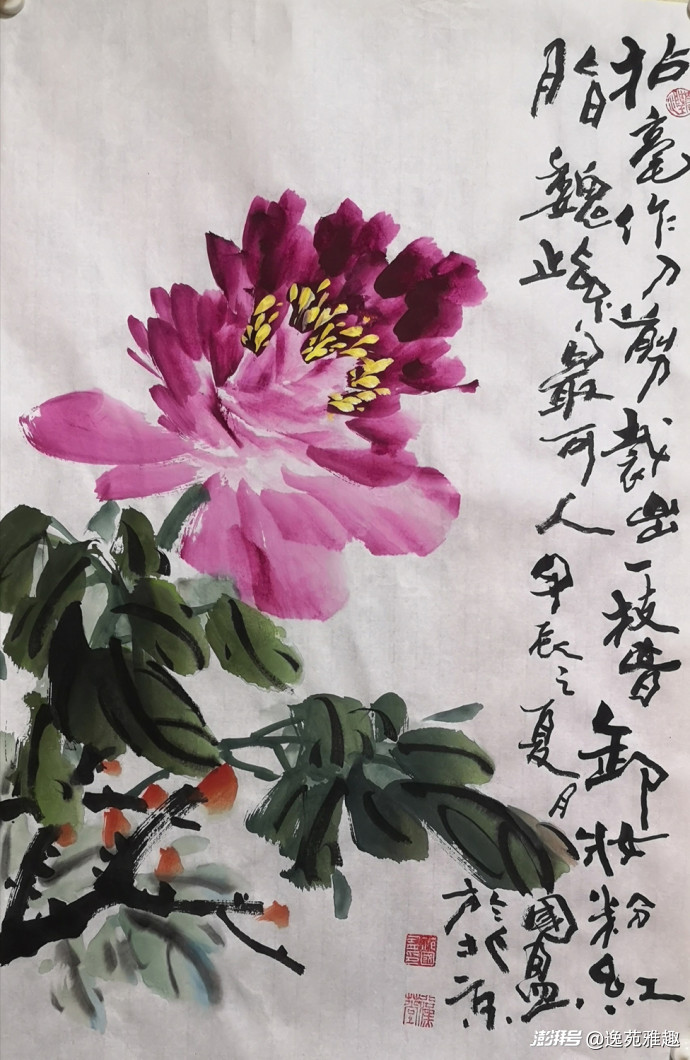 拈毫作刀剪裁出一枝昔卸妆粉红
脂魏紫最可人甲辰之夏月国益
於北京
澎湃号@逸苑雅趣